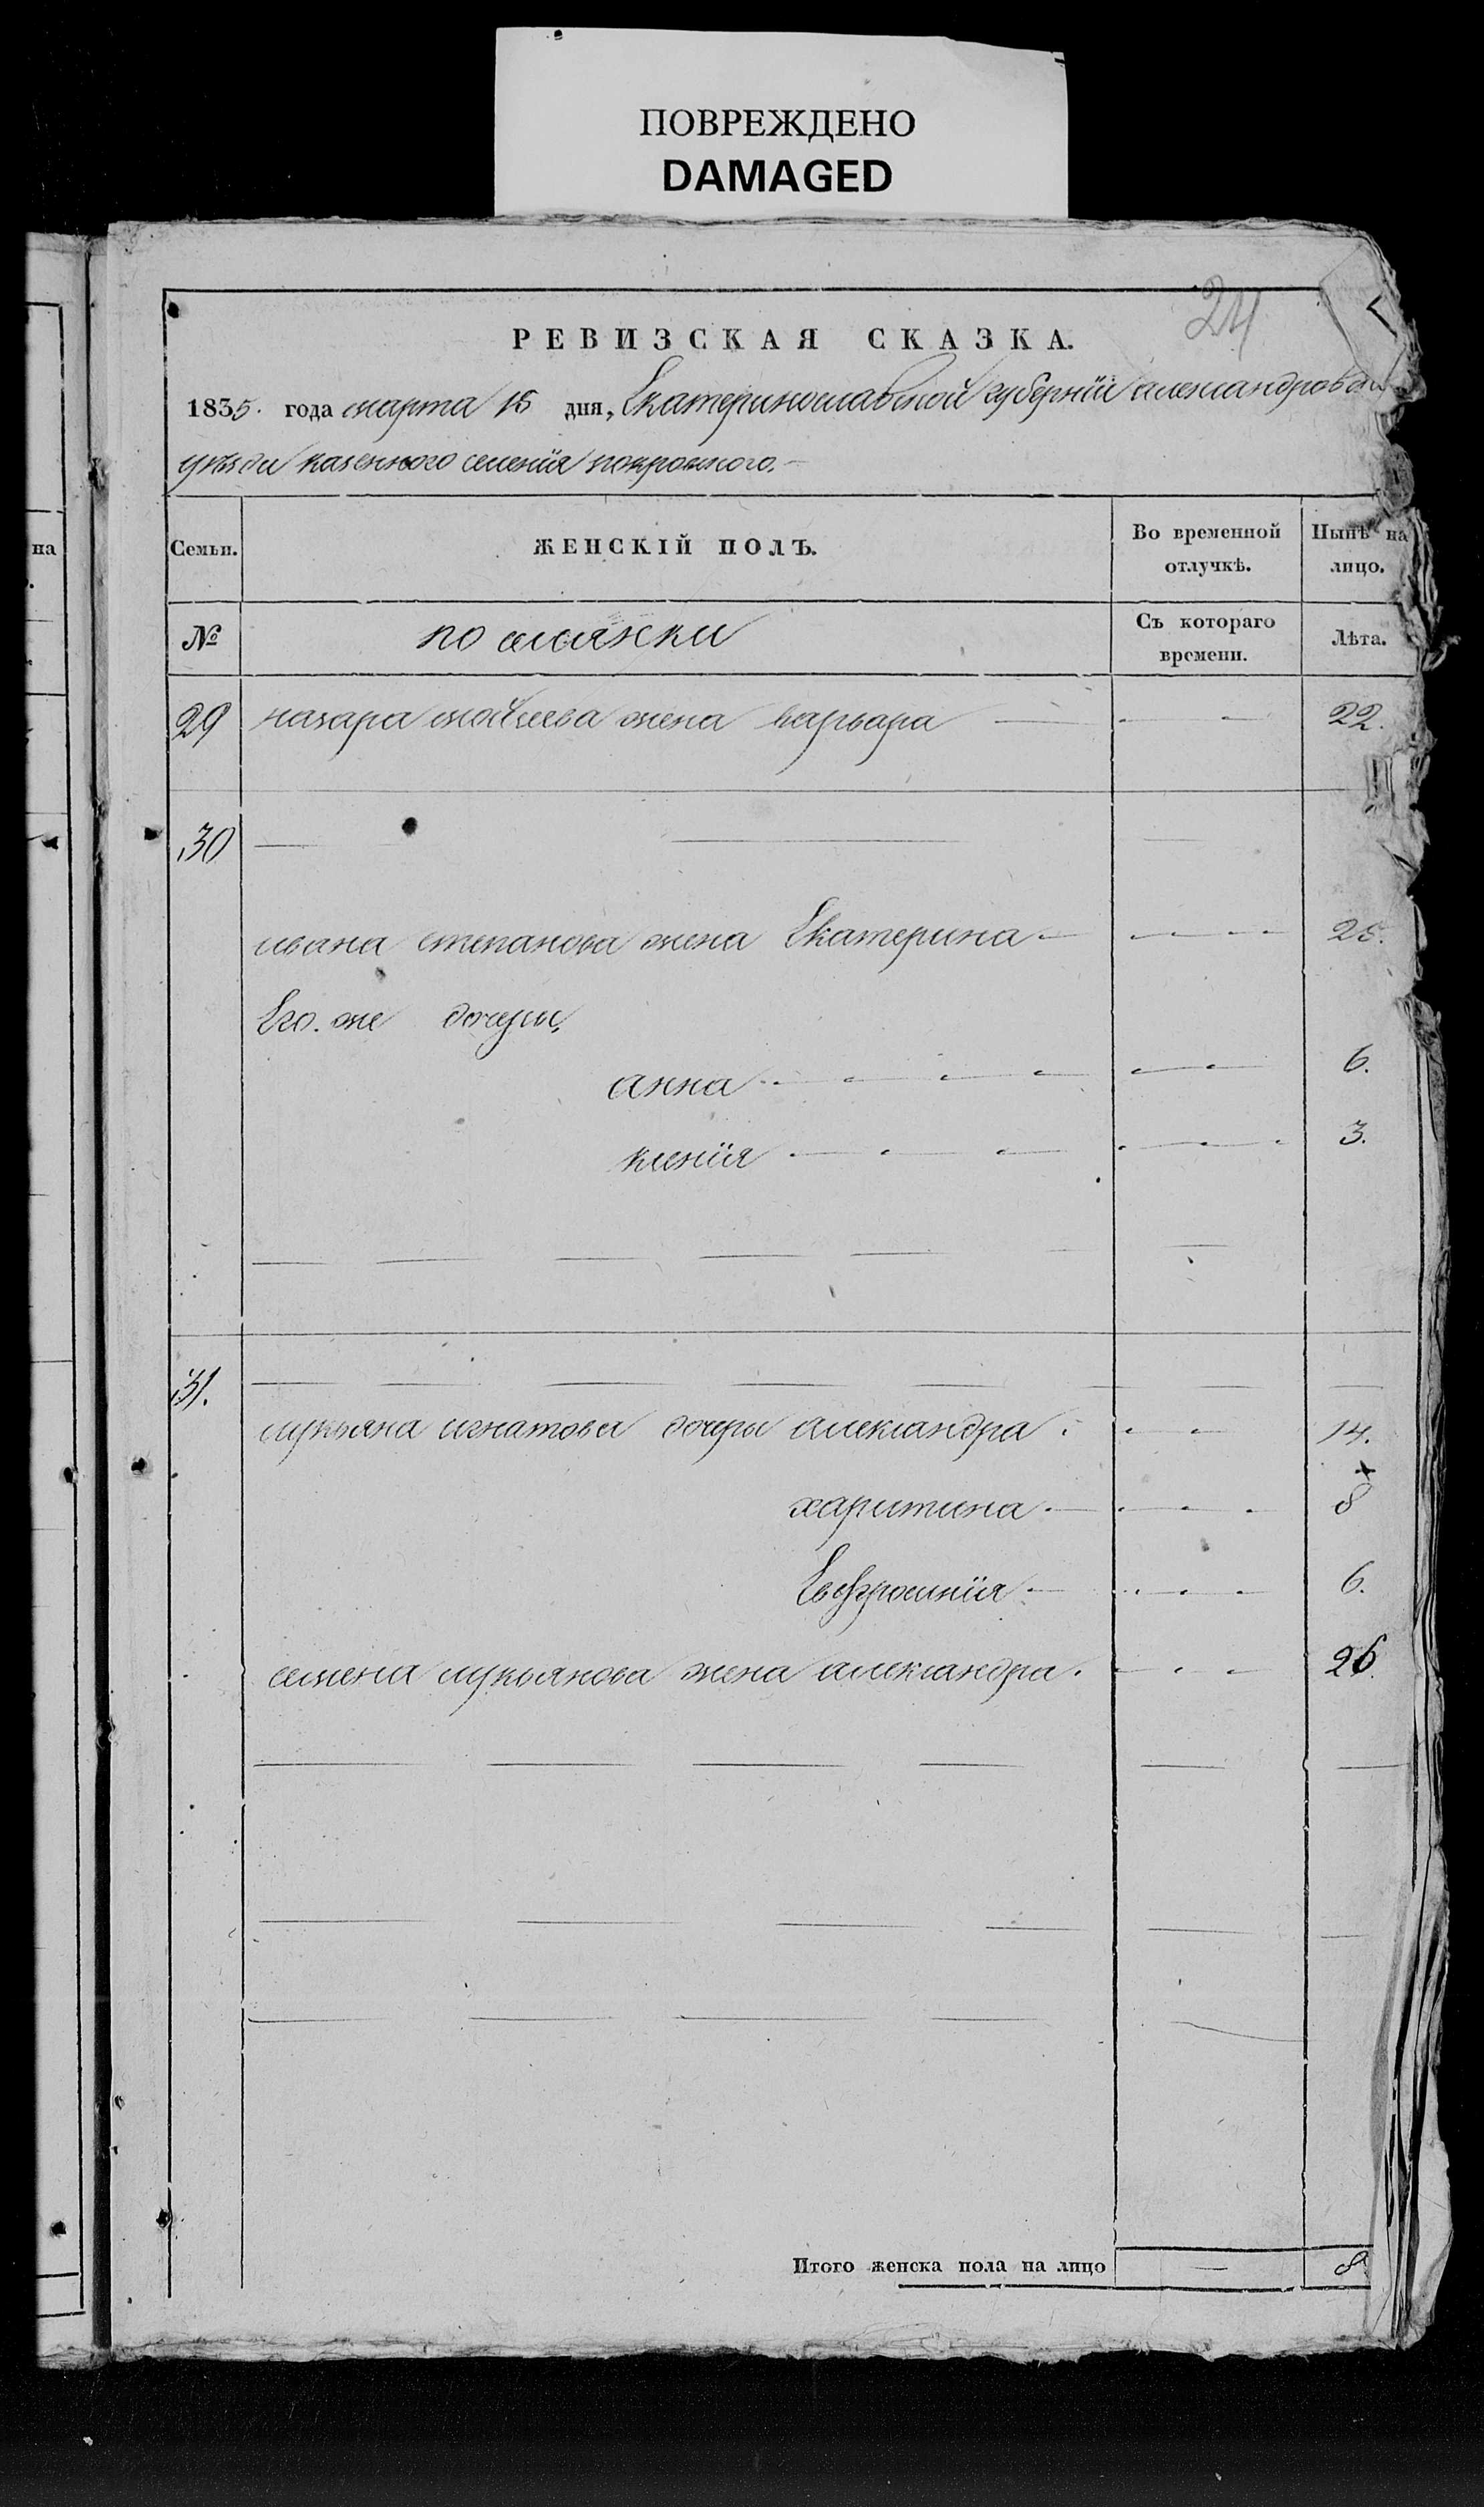 ПОВРЕЖДЕНО
DAMAGED
24
РЕВИЗСКАЯ СКАЗКА.
1835. года марта 15 дня, Екатеринославской губернїи александровска
уѣзда казенного селенїя покровского.
на
Семьи. ЖЕНСКІЙ ПОЛЪ. Во временной отлучкѣ. Нынѣ на лицо.
№ поселянки Съ котораго времени. Лѣта.
29 назара моисеева жена варвара 22.
30
ивана степанова жена Екатерина 25.
Его же дочери,
анна 6.
ксенїя 3.
31.
лукьяна игнатова дочери александра 14.
харитина 8
Евфросинїя 6.
семена лукьянова жена александра. 26.
Итого женска пола на лицо — 8